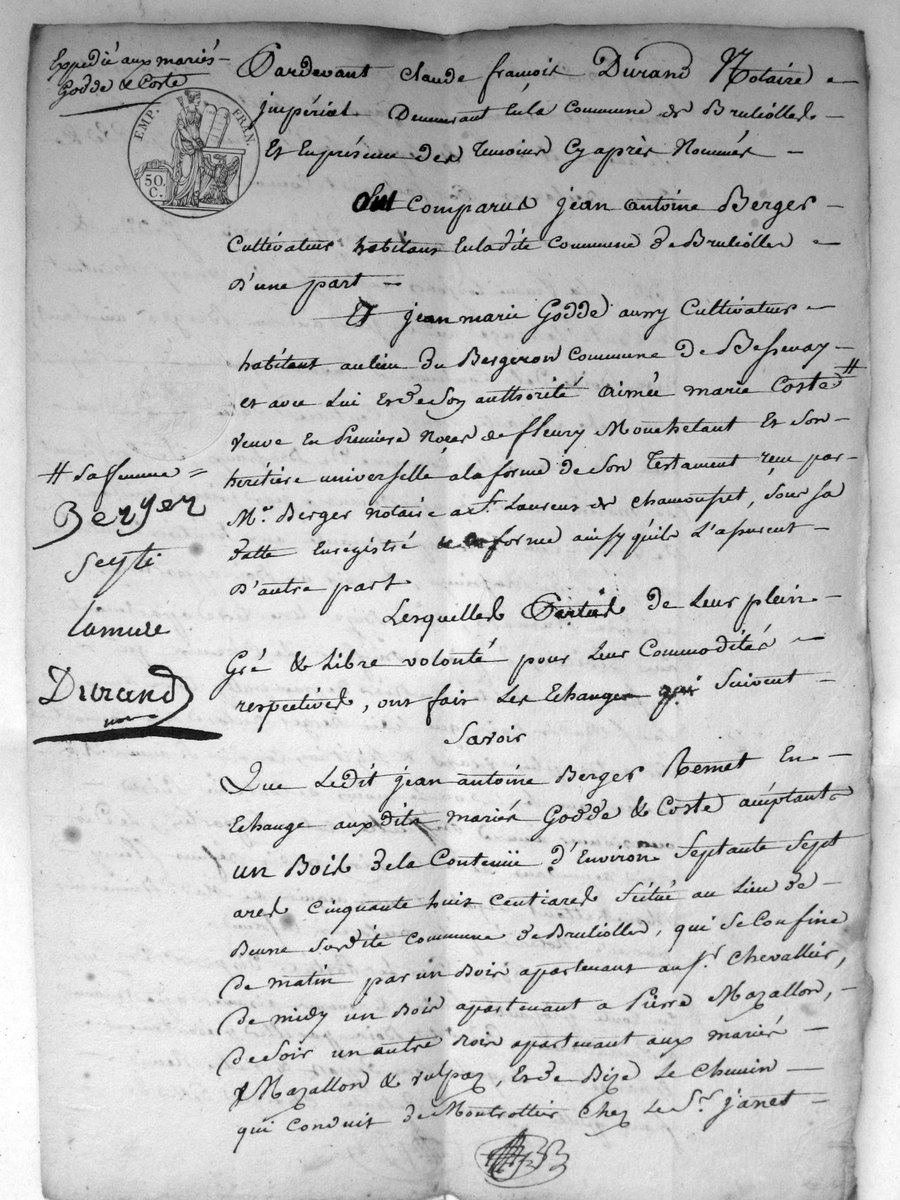 Expedié aux mariés
Godde & Coste
EMP. FRAN.
50. C.
Pardevant Claude françois Durand Notaire
impérial Demeurant En la Commune de Bruliolles
Et En présence des Temoins Cy après Nommés
Out Comparus jean antoine Berger
Cultivateur habitant En ladite Commune de Bruliolles
D'une part
Et jean marie Godde aussy Cultivateur
habitant au lieu du Bergeron Commune de Bessenay
et avec Lui Et de Son authorité aimée marie Coste #
veuve En Premiere Noces de fleury Mouchetant Et Son
heritière universelle à la forme de Son Testament reçu par
Me Berger notaire a St Laurens de Chamousset, Sous Sa
datte Enregistré forme ainsy qu'ils L'assurent
D'autre part
# Sa femme =
Berger
Seyti
Lamure
Durand
not
Lesquelles Parties de Leur plein
Gré & Libre volonté pour Leur Commodités
respectives, ont fait Les Echanges qui Suivent
Savoir
Que Ledit jean antoine Berger Remet En
Echange auxdits mariés Godde & Coste acceptant
un Bois de la Contenüe d'Environ Septante Sept
ares Cinquante huit Centiares Situé au Lieu de
Susdite Commune de Bruliolles, qui Se Confine
de matin par un Bois apartenant au Sr. Chevallier,
de midy un Bois apartenant a Pierre Mazallon,
de Soir un autre Bois apartenant aux mariés
Mazallon & vulpaz, Et de Bize Le Chemin
qui Conduit de Montrottier Chez Le Sr. janet